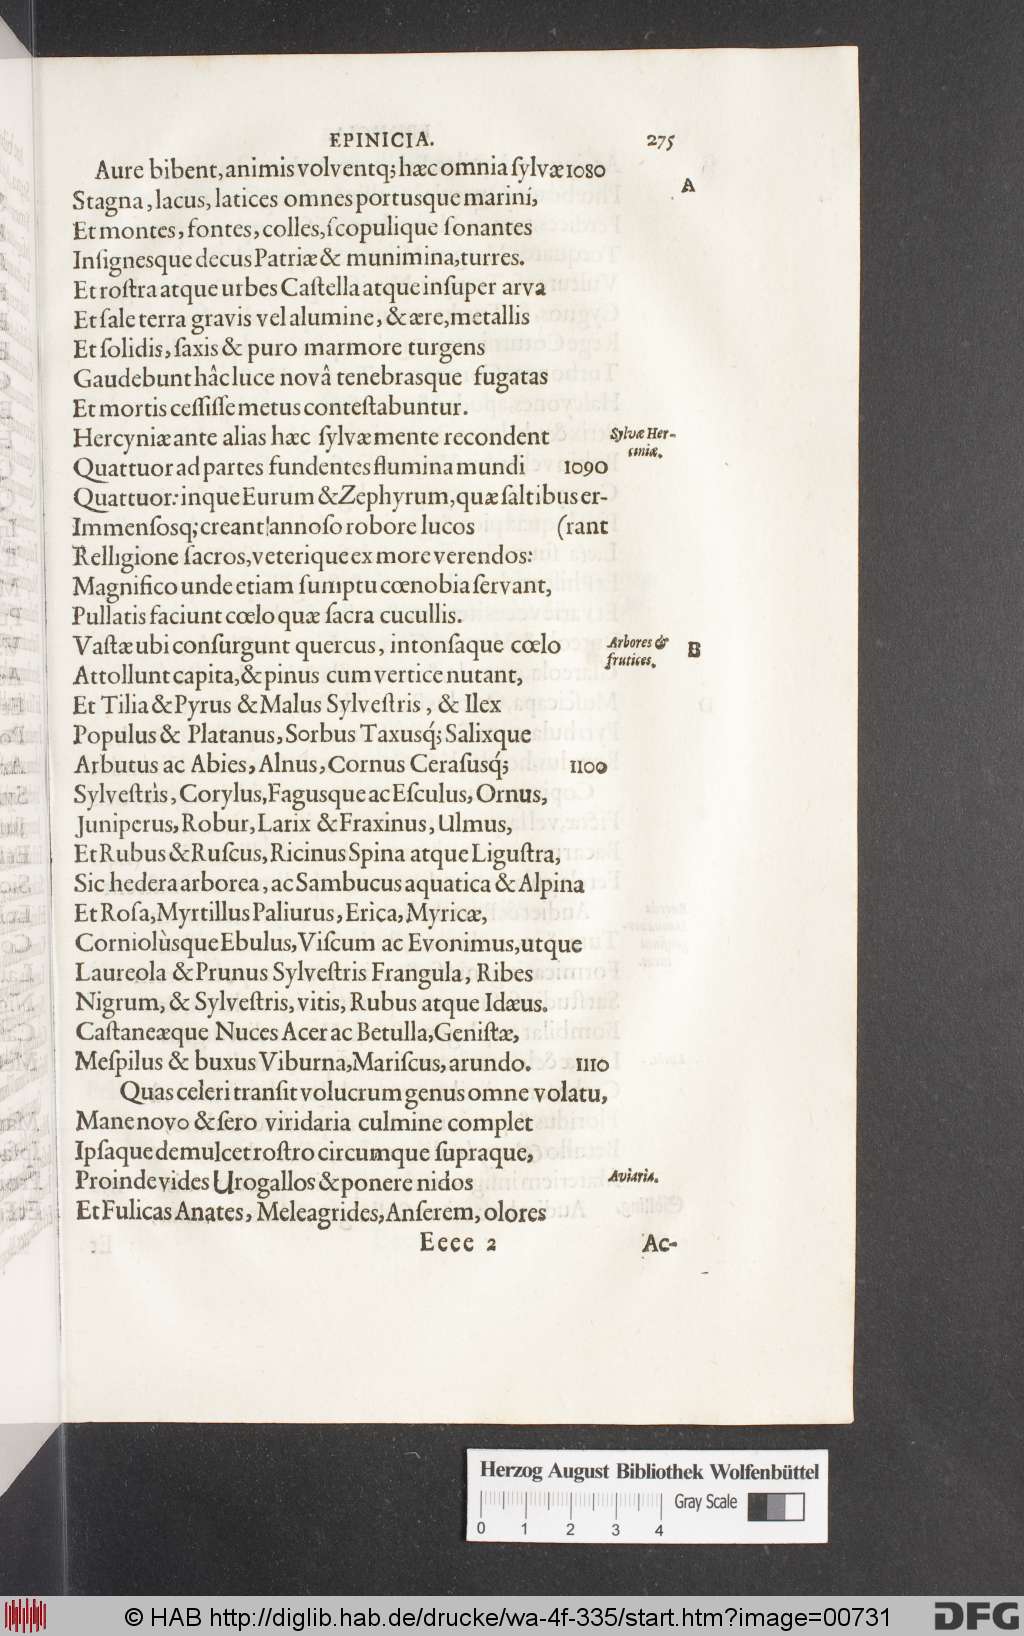 EPINICIA. 275
Aure bibent, animis volventq; hæc omnia ſylvæ 1080
A
Stagna, lacus, latices omnes portusque marini,
Et montes, fontes, colles, ſcopulique ſonantes
Inſignesque decus Patriæ & munimina, turres.
Et roſtra atque urbes Caſtella atque inſuper arva
Et ſale terra gravis vel alumine, & ære, metallis
Et ſolidis, ſaxis & puro marmore turgens
Gaudebunt hâc luce novâ tenebrasque fugatas
Et mortis ceſſiſſe metus conteſtabuntur.
Hercyniæ ante alias hæc ſylvæ mente recondent
Sylvæ Her-
ciniæ.
Quattuor ad partes fundentes flumina mundi 1090
Quattuor: inque Eurum & Zephyrum, quæ ſaltibus er-
Immenſosq; creant annoſo robore lucos (rant
Relligione ſacros, veterique ex more verendos:
Magnifico unde etiam ſumptu cœnobia ſervant,
Pullatis faciunt cœlo quæ ſacra cucullis.
Vaſtæ ubi conſurgunt quercus, intonſaque cœlo
Arbores &
frutices.
B
Attollunt capita, & pinus cum vertice nutant,
Et Tilia & Pyrus & Malus Sylveſtris, & Ilex
Populus & Platanus, Sorbus Taxusq́; Salixque
Arbutus ac Abies, Alnus, Cornus Ceraſusq́; 1100
Sylveſtris, Corylus, Fagusque ac Eſculus, Ornus,
Juniperus, Robur, Larix & Fraxinus, Ulmus,
Et Rubus & Ruſcus, Ricinus Spina atque Liguſtra,
Sic hedera arborea, ac Sambucus aquatica & Alpina
Et Roſa, Myrtillus Paliurus, Erica, Myricæ,
Corniolùsque Ebulus, Viſcum ac Evonimus, utque
Laureola & Prunus Sylveſtris Frangula, Ribes
Nigrum, & Sylveſtris, vitis, Rubus atque Idæus.
Caſtaneæque Nuces Acer ac Betulla, Geniſtæ,
Meſpilus & buxus Viburna, Mariſcus, arundo. 1110
Quas celeri tranſit volucrum genus omne volatu,
Mane novo & ſero viridaria culmine complet
Ipſaque demulcet roſtro circumque ſupraque,
Proinde vides Urogallos & ponere nidos
Aviaria.
Et Fulicas Anates, Meleagrides, Anſerem, olores
Eeee 2 Ac-
Herzog August Bibliothek Wolfenbüttel
Gray Scale
0 1 2 3 4
© HAB http://diglib.hab.de/drucke/wa-4f-335/start.htm?image=00731
DFG